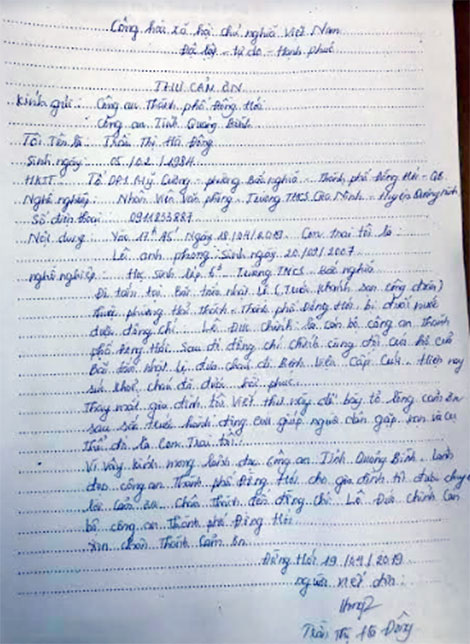 Cộng hòa xã hội chủ nghĩa Việt Nam
Độc lập - tự do - Hạnh phúc
THƯ CẢM ƠN
Kính gửi: Công an Thành phố Đồng Hới
Công an Tỉnh Quảng Bình
Tôi Tên là: Trần Thị Hà Đông
Sinh ngày: 05/02/1984
HKTT: Tổ DP1 Mỹ Cương - phường Bắc nghĩa - Thành phố Đồng Hới - QB
Nghề nghiệp: Nhân Viên Văn phòng - Trường THCS
Số điện thoại: 0911233887
Nội dung: Vào 17h 45' Ngày 18/04/2019 Con trai tôi là:
Lê anh phong sinh ngày 20/09/2007
nghề nghiệp: Học sinh lớp 6 Trường THCS Bắc nghĩa
Đi tắm tại Bãi tắm nhật Lệ (Trước khách sạn công đoàn)
thuộc phường Hải Thành - Thành phố Đồng Hới bị đuối nước
được đồng chí Lê Đức Chinh là cán bộ công an Thành
phố Đồng Hới. Sau đó đồng chí Chinh cùng đội cứu hộ của
Bãi tắm nhật Lệ đưa cháu đi Bệnh Viện Cấp Cứu. Hiện nay
sức khỏe cháu đã được hồi phục.
Thay mặt gia đình tôi viết thư này để bày tỏ lòng cảm ơn
sâu sắc trước hành động cứu giúp người dân gặp nạn và cụ
Thể đó là Con Trai tôi.
Vì vậy kính mong lãnh đạo Công an Tỉnh Quảng Bình - Lãnh
đạo công an Thành phố Đồng Hới cho gia đình tôi được chuyển
lời Cảm ơn Chân thành đến đồng chí Lê Đức Chinh Cán
bộ công an Thành phố Đồng Hới.
Xin chân Thành Cảm ơn
Đồng Hới 19/04/2019
người viết đơn:
Trần Thị Hà Đông